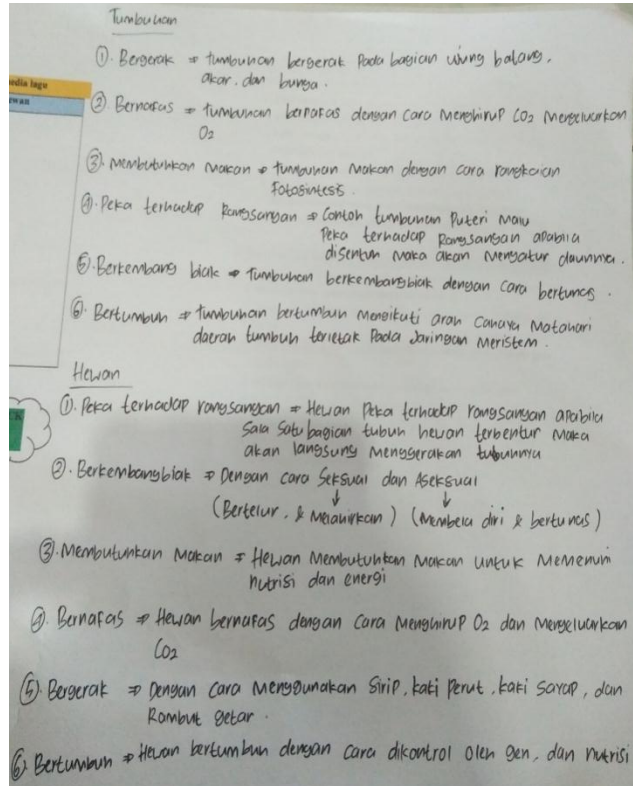 Tumbuhan
①. Bergerak ⇒ tumbuhan bergerak Pada bagian ujung batang,
akar, dan bunga.
edia lagu
ewan
②. Bernafas ⇒ tumbuhan bernafas dengan cara Menghirup CO2 Mengeluarkan
O2
③. Membutuhkan Makan ⇒ tumbuhan Makan dengan cara rangkaian
fotosintesis.
④. Peka terhadap Rangsangan ⇒ Contoh tumbuhan Puteri Malu
Peka terhadap Rangsangan apabila
disentuh Maka akan Mengatur daunnya.
⑤. Berkembang biak ⇒ Tumbuhan berkembangbiak dengan cara bertunas.
⑥. Bertumbuh ⇒ tumbuhan bertumbuh Mengikuti arah Cahaya Matahari
daerah tumbuh terletak Pada Jaringan Meristem.
Hewan
①. Peka terhadap rangsangan ⇒ Hewan Peka terhadap rangsangan apabila
Sala Satu bagian tubuh hewan terbentur Maka
akan langsung Menggerakan tubuhnya
②. Berkembangbiak ⇒ Dengan cara Seksual dan Aseksual
(Bertelur, & Melahirkan) (Membela diri & bertunas)
③. Membutuhkan Makan ⇒ Hewan Membutuhkan Makan untuk Memenuhi
nutrisi dan energi
④. Bernafas ⇒ Hewan bernafas dengan Cara Menghirup O2 dan Mengeluarkan
CO2
⑤. Bergerak ⇒ Dengan Cara Menggunakan Sirip, kaki Perut, kaki Sayap, dan
Rambut getar.
⑥. Bertumbuh ⇒ Hewan bertumbuh dengan cara dikontrol oleh gen, dan nutrisi